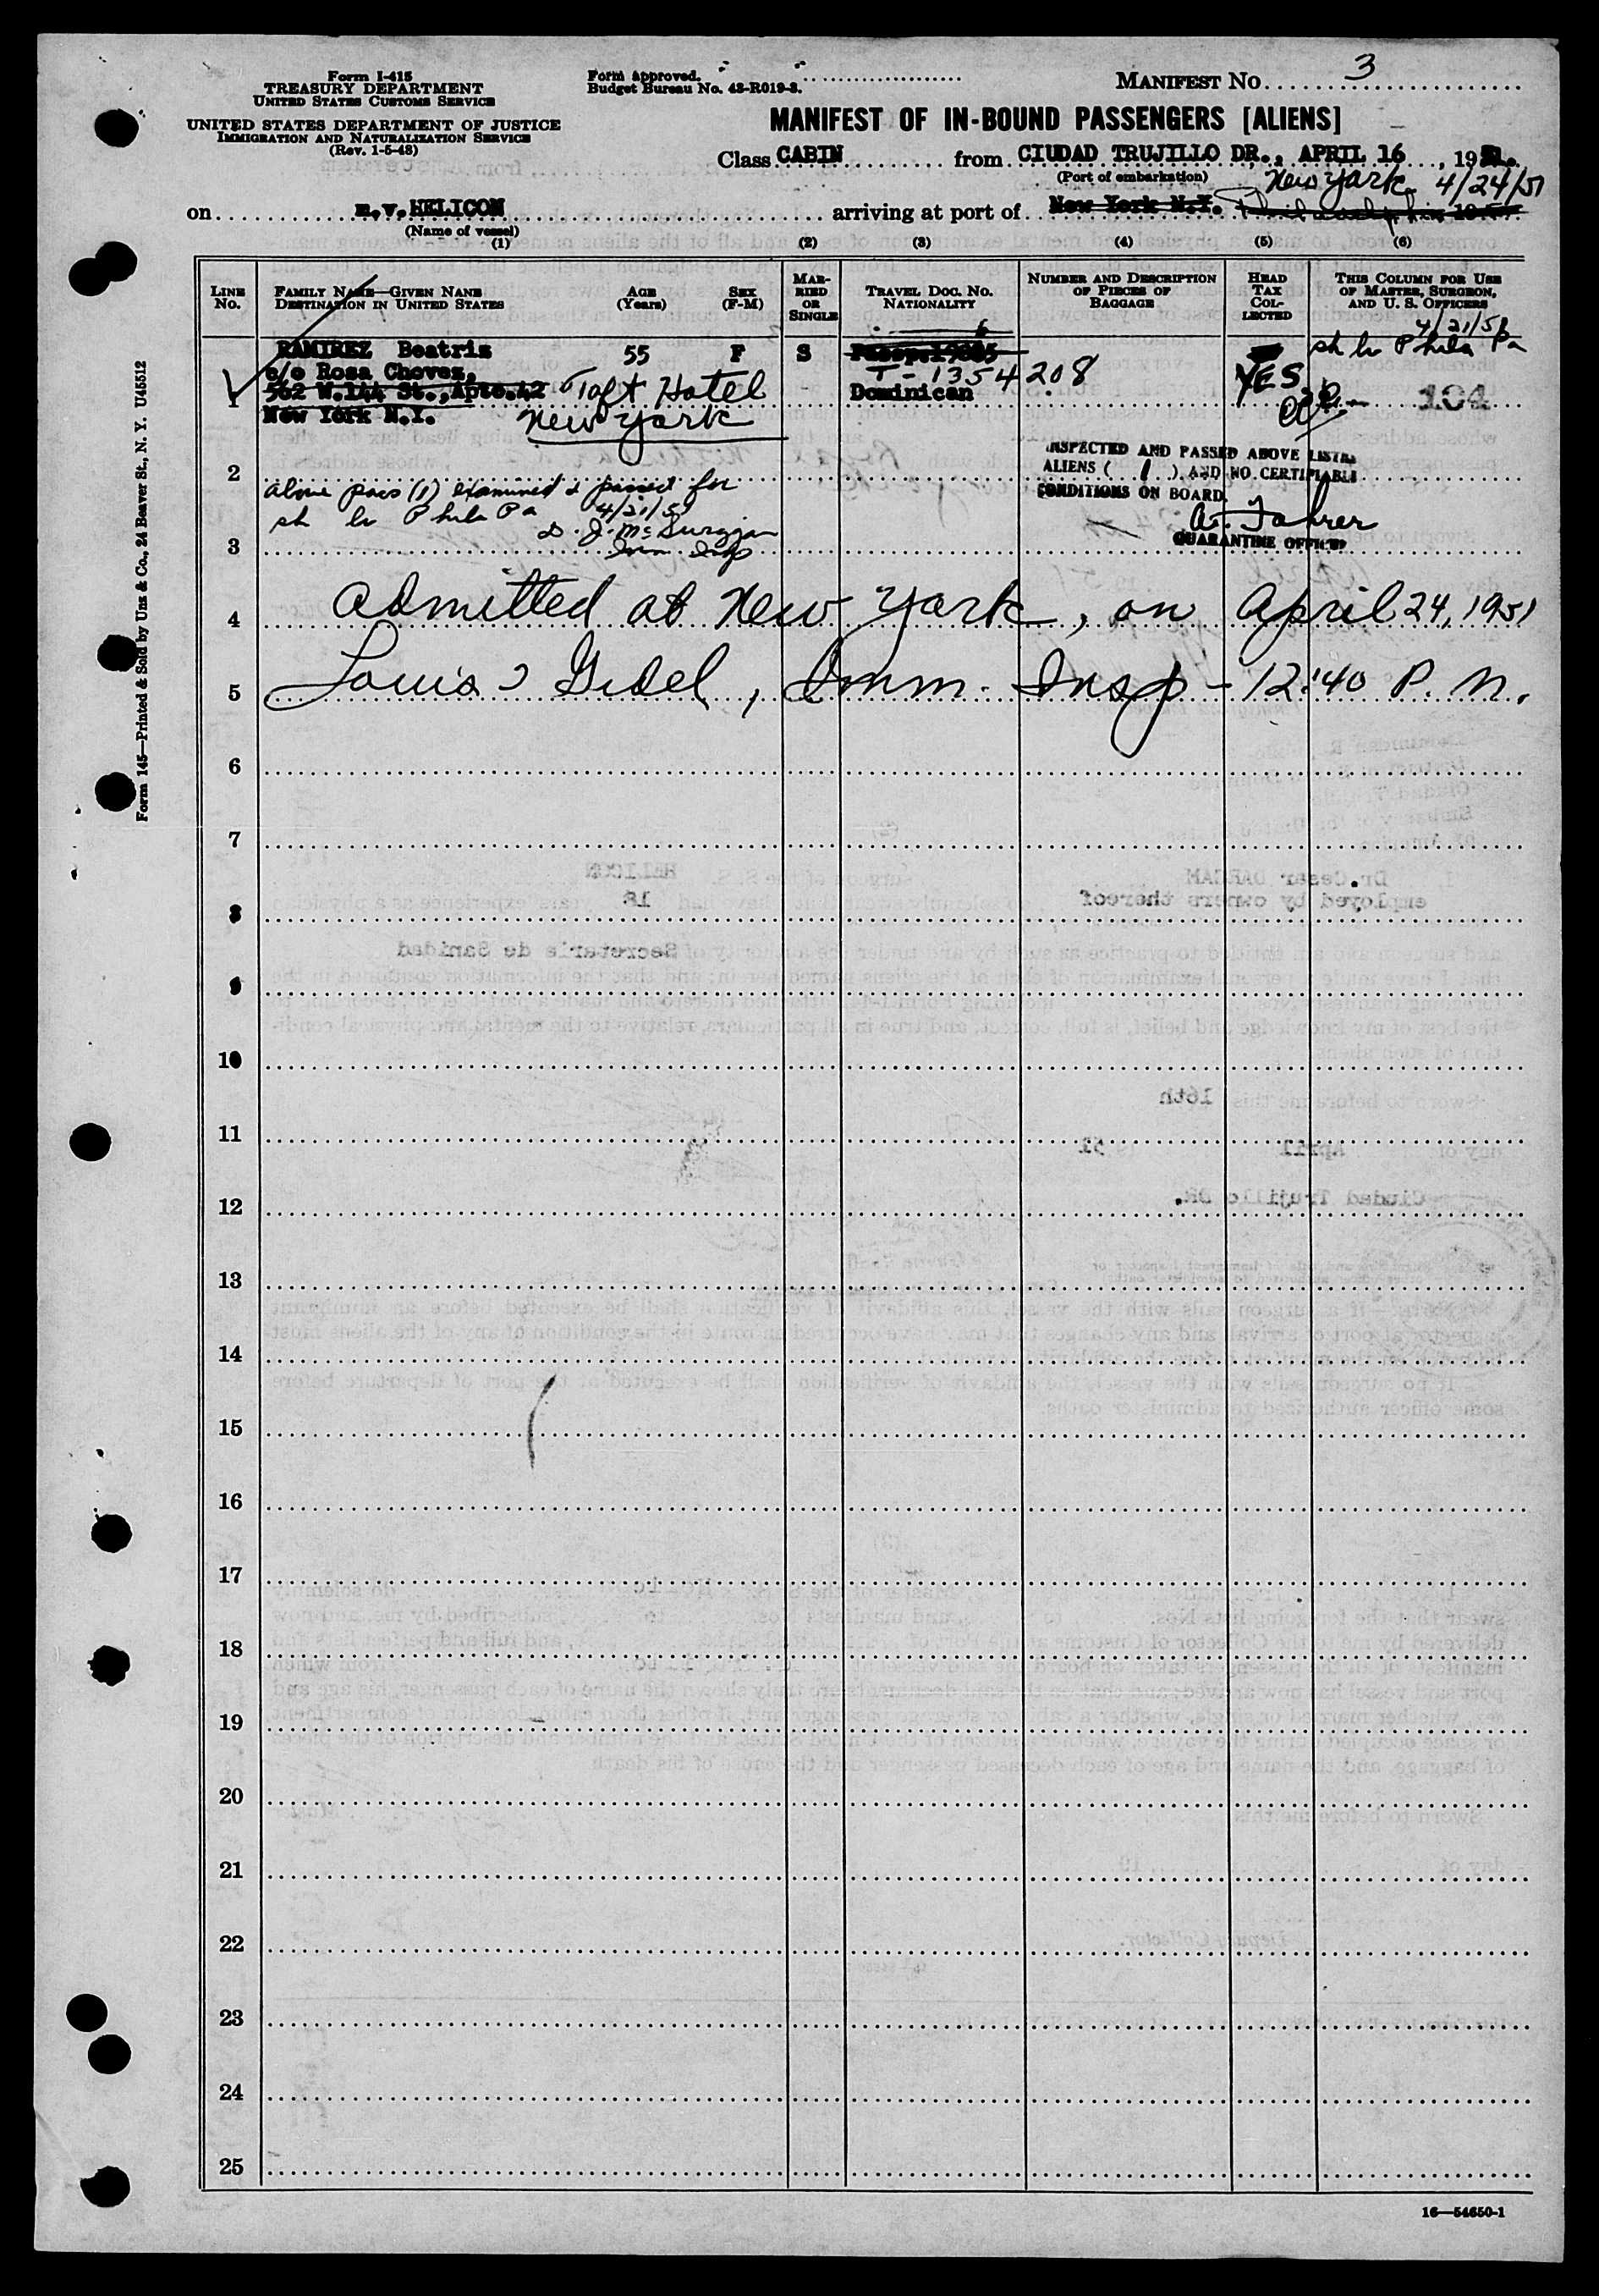 Form I-415
TREASURY DEPARTMENT
UNITED STATES CUSTOMS SERVICE
UNITED STATES DEPARTMENT OF JUSTICE
IMMIGRATION AND NATURALIZATION SERVICE
(Rev. 1-5-48)
Form approved.
Budget Bureau No. 43-R019-3.
MANIFEST NO. 3
MANIFEST OF IN-BOUND PASSENGERS [ALIENS]
Class CABIN from CIUDAD TRUJILLO DR., APRIL 16, 1951.
(Port of embarkation)
New York 4/24/51
on m.v. HELICON arriving at port of New York N.Y. Philadelphia
(Name of vessel)
(1) (2) (3) (4) (5) (6)
LINE No.
FAMILY NAME—GIVEN NAME
DESTINATION IN UNITED STATES
AGE (Years)
SEX (F-M)
MARRIED OR SINGLE
TRAVEL DOC. NO. NATIONALITY
NUMBER AND DESCRIPTION OF PIECES OF BAGGAGE
HEAD TAX COLLECTED
THIS COLUMN FOR USE OF MASTER, SURGEON, AND U. S. OFFICERS
4/21/51
sh lv Phila Pa
1 RAMIREZ Beatris 55 F S
c/o Rosa Chovez,
562 W.144 St.,Apto.42 Taft Hotel T-1354208 YES
New York N.Y. New York Dominican 104
INSPECTED AND PASSED ABOVE LISTED
ALIENS ( 1 ) AND NO CERTIFIABLE
CONDITIONS ON BOARD.
QUARANTINE OFFICER
2
above pass (1) examined & passed for
sh lv Phila Pa 4/21/51
Imm Insp
3
4 Admitted at New York, on April 24, 1951
5 Louis J Gidel, Imm. Insp - 12:40 P. M.
6
7
8
9
10
11
12
13
14
15
16
17
18
19
20
21
22
23
24
25
16—54650-1
Form 145—Printed & Sold by Unz & Co., 24 Beaver St., N. Y. U45512